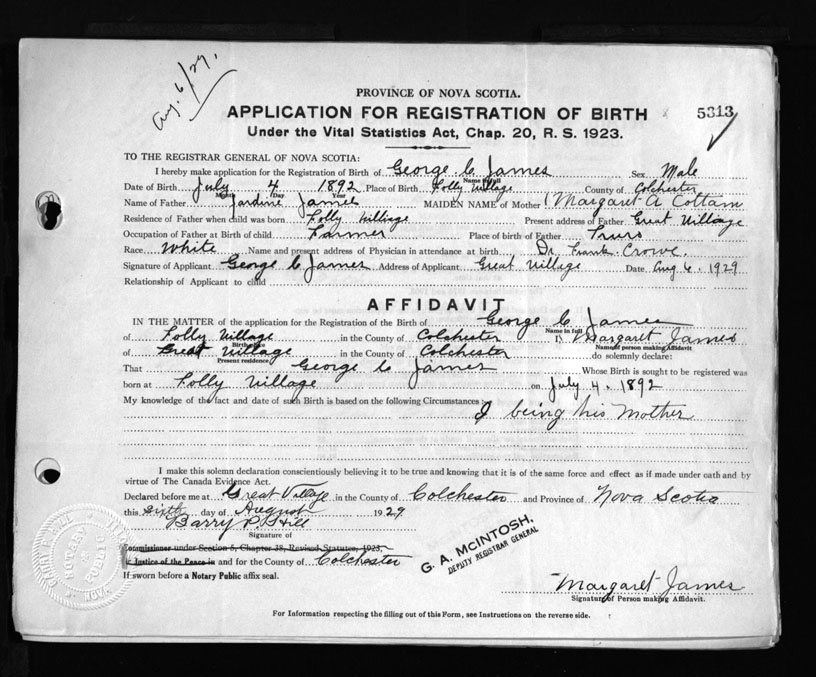 Aug. 6/29.
PROVINCE OF NOVA SCOTIA.
APPLICATION FOR REGISTRATION OF BIRTH
5313
Under the Vital Statistics Act, Chap. 20, R. S. 1923.
TO THE REGISTRAR GENERAL OF NOVA SCOTIA:
I hereby make application for the Registration of Birth of George C James Sex Male
Name in full
Date of Birth July 4 1892 Place of Birth Folly Village County of Colchester
Month Day Year
Name of Father Jardine James MAIDEN NAME of Mother Margaret A Cottam
Residence of Father when child was born Folly Village Present address of Father Great Village
Occupation of Father at Birth of child Farmer Place of birth of Father Truro
Race White Name and present address of Physician in attendance at birth Dr Frank Crowe.
Signature of Applicant George C James Address of Applicant Great Village Date Aug 6. 1929
Relationship of Applicant to child
AFFIDAVIT
IN THE MATTER of the application for the Registration of the Birth of George C James
Name in full
of Folly Village in the County of Colchester I, Margaret James
Birth place
Name of person making Affidavit
of Great Village in the County of Colchester do solemnly declare:
Present residence
That George C James Whose Birth is sought to be registered was
born at Folly Village on July 4. 1892
My knowledge of the fact and date of such Birth is based on the following Circumstances:
I being his Mother
I make this solemn declaration conscientiously believing it to be true and knowing that it is of the same force and effect as if made under oath and by
virtue of The Canada Evidence Act.
Declared before me at Great Village in the County of Colchester and Province of Nova Scotia
this sixth day of August 1929
Barry P. Hill
Signature of
Commissioner under Section 5, Chapter 38, Revised Statutes, 1923,
Justice of the Peace in and for the County of Colchester
If sworn before a Notary Public affix seal.
G. A. McINTOSH,
DEPUTY REGISTRAR GENERAL
Margaret James
Signature of Person making Affidavit.
For Information respecting the filling out of this Form, see Instructions on the reverse side.